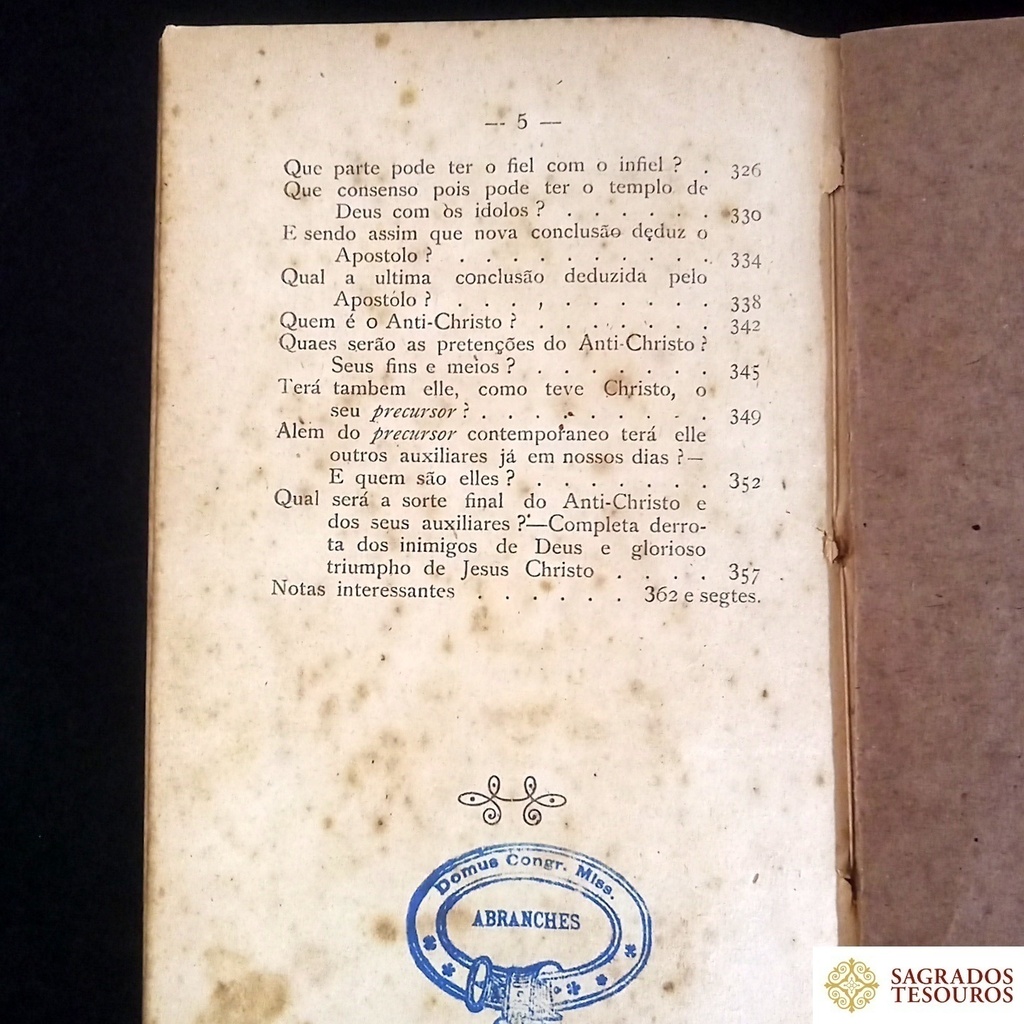 — 5 —
Que parte pode ter o fiel com o infiel ? . 326
Que consenso pois pode ter o templo de
Deus com os idolos ? . . . . . . 330
E sendo assim que nova conclusão deduz o
Apostolo ? . . . . . . . . . . 334
Qual a ultima conclusão deduzida pelo
Apostólo ? . . . , . . . . . . 338
Quem é o Anti-Christo ? . . . . . . . 342
Quaes serão as pretenções do Anti-Christo ?
Seus fins e meios ? . . . . . . . 345
Terá tambem elle, como teve Christo, o
seu precursor ? . . . . . . . . . 349
Além do precursor contemporaneo terá elle
outros auxiliares já em nossos dias ?—
E quem são elles ? . . . . . . . 352
Qual será a sorte final do Anti-Christo e
dos seus auxiliares ?—Completa derro-
ta dos inimigos de Deus e glorioso
triumpho de Jesus Christo . . . . 357
Notas interessantes . . . . . . 362 e segtes.
Domus Congr. Miss.
ABRANCHES
SAGRADOS
TESOUROS